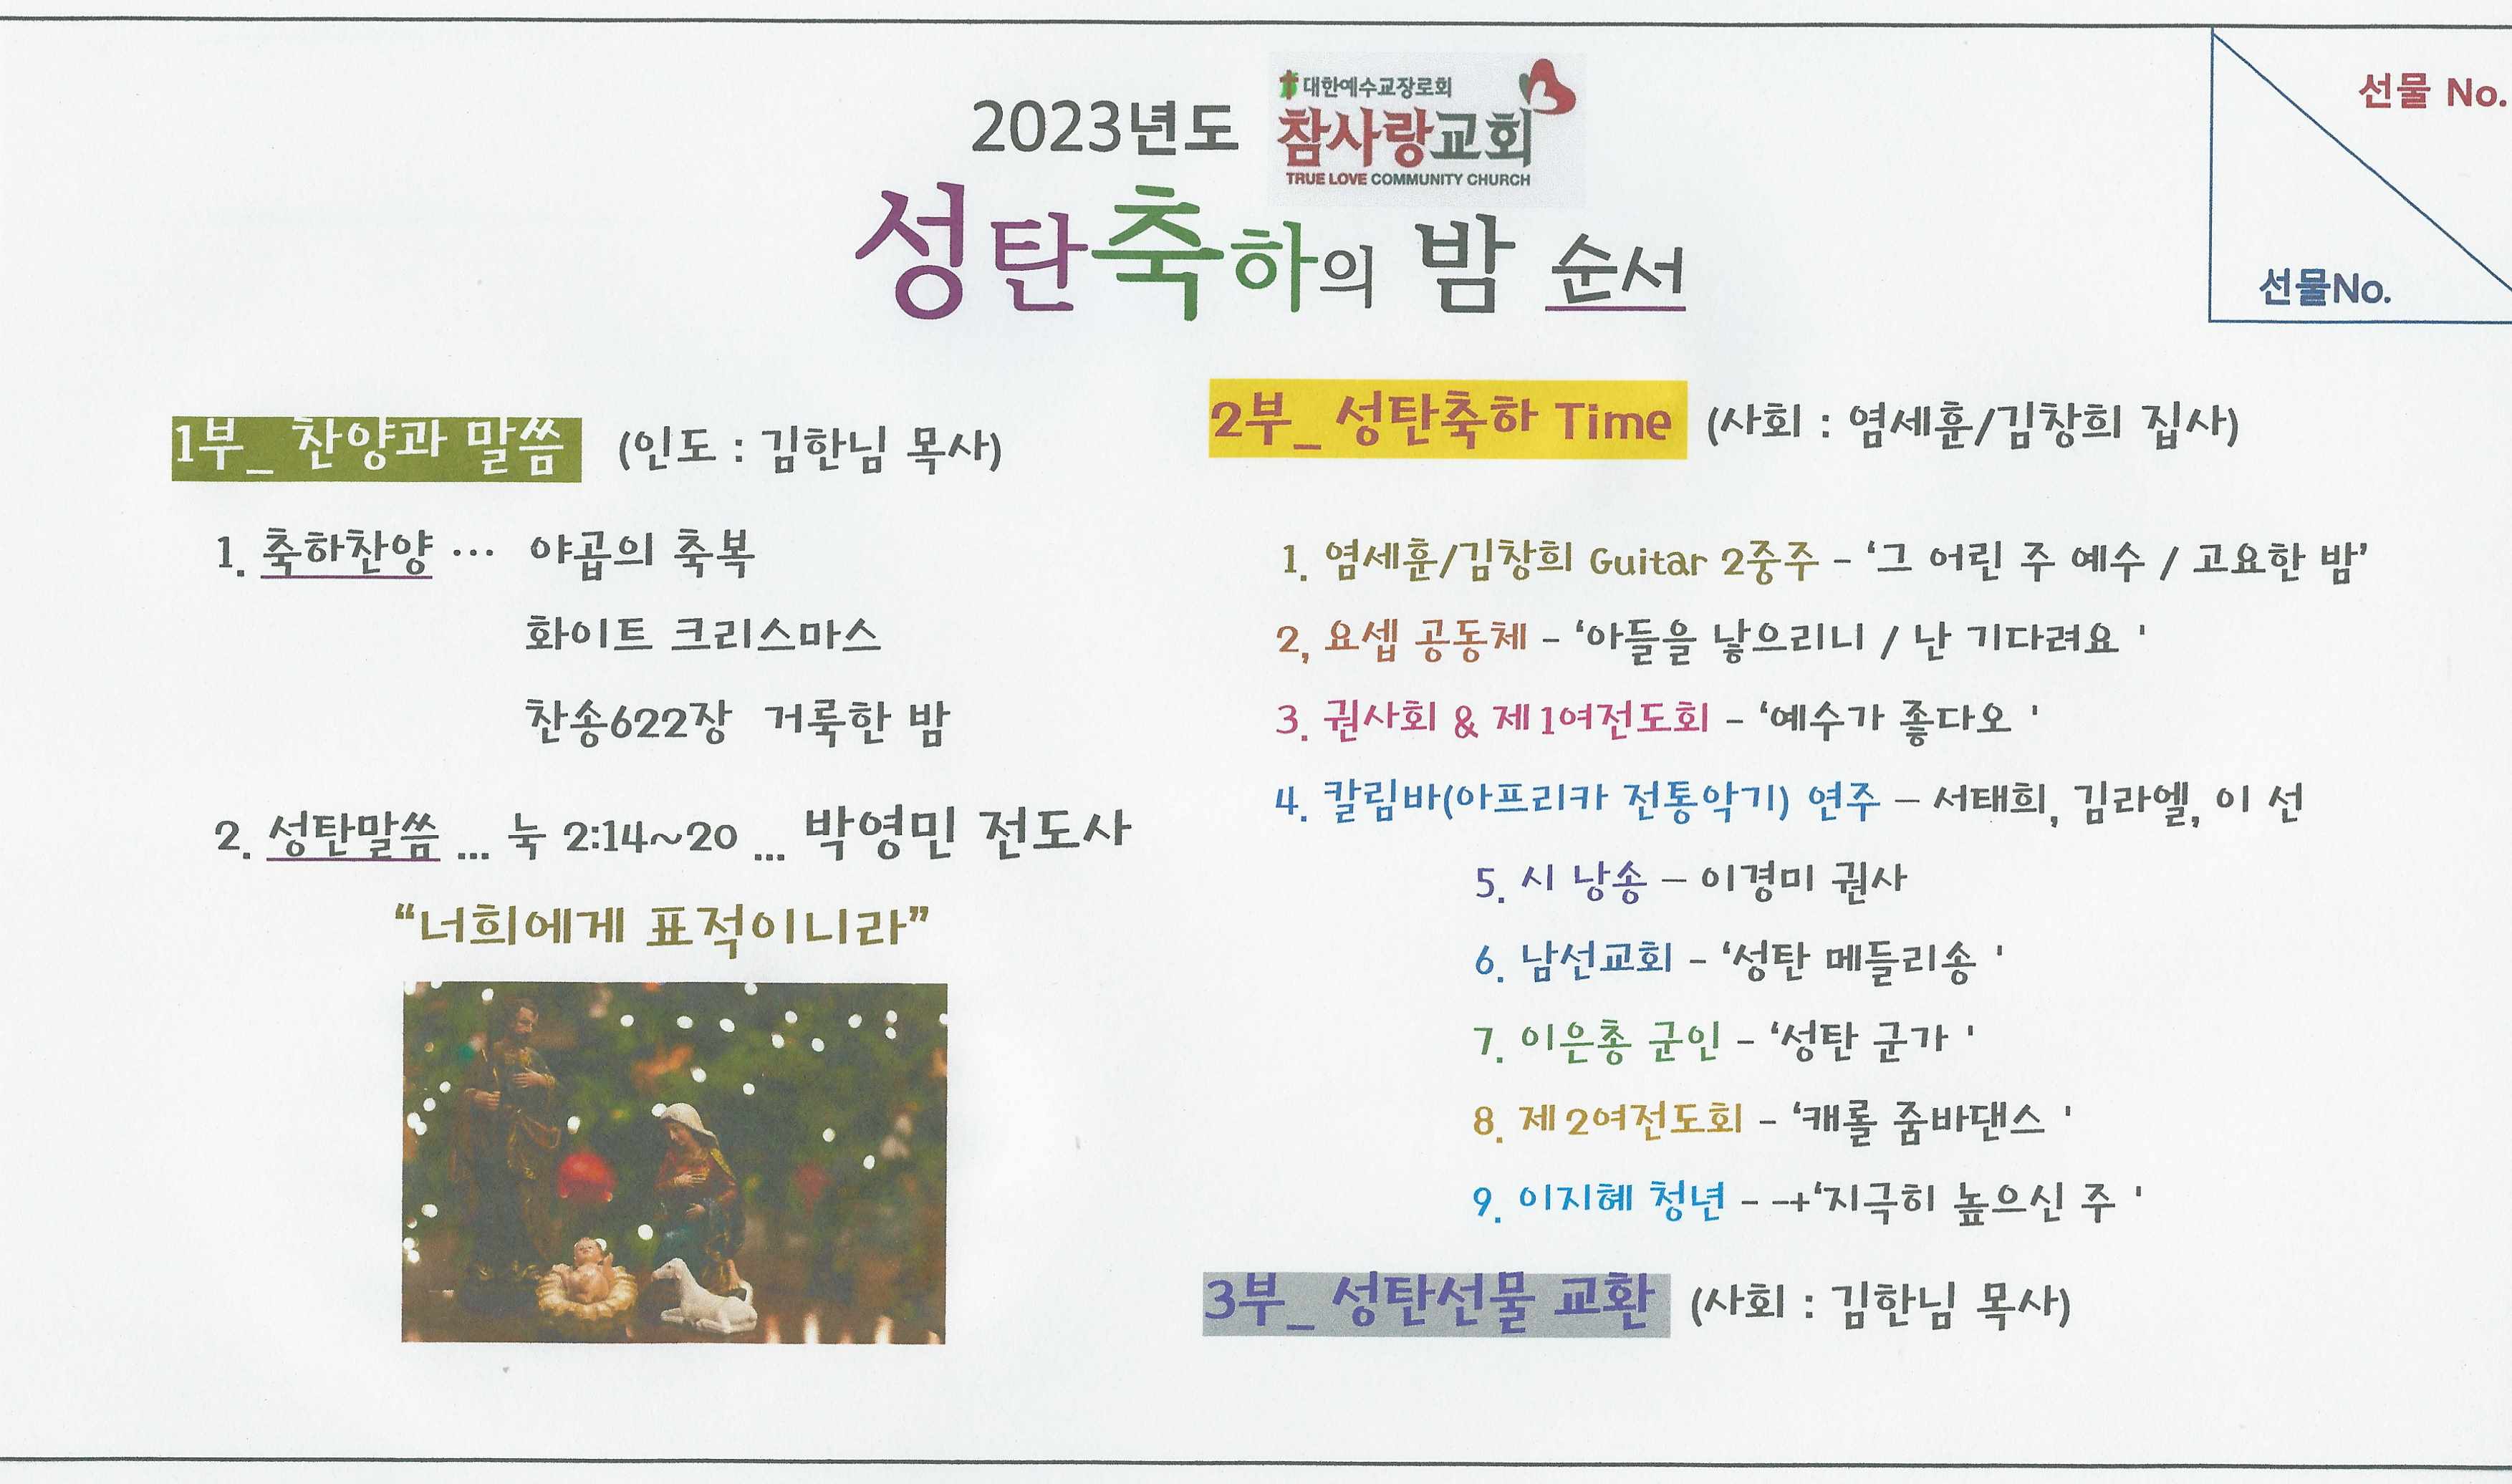 대한예수교장로회
2023년도 참사랑교회
TRUE LOVE COMMUNITY CHURCH
성탄축하의 밤 순서
선물 No.
선물No.
1부_ 찬양과 말씀 (인도 : 김한님 목사)
1. 축하찬양 … 야곱의 축복
화이트 크리스마스
찬송622장 거룩한 밤
2. 성탄말씀 ... 눅 2:14~20 ... 박영민 전도사
“너희에게 표적이니라”
2부_ 성탄축하 Time (사회 : 염세훈/김창희 집사)
1. 염세훈/김창희 Guitar 2중주 - ‘그 어린 주 예수 / 고요한 밤’
2, 요셉 공동체 - ‘아들을 낳으리니 / 난 기다려요 '
3. 권사회 & 제1여전도회 - ‘예수가 좋다오 '
4. 칼림바(아프리카 전통악기) 연주 – 서태희, 김라엘, 이 선
5. 시 낭송 – 이경미 권사
6. 남선교회 - ‘성탄 메들리송 '
7. 이은총 군인 - ‘성탄 군가 '
8. 제2여전도회 - ‘캐롤 줌바댄스 '
9. 이지혜 청년 - -+‘지극히 높으신 주 '
3부_ 성탄선물 교환 (사회 : 김한님 목사)